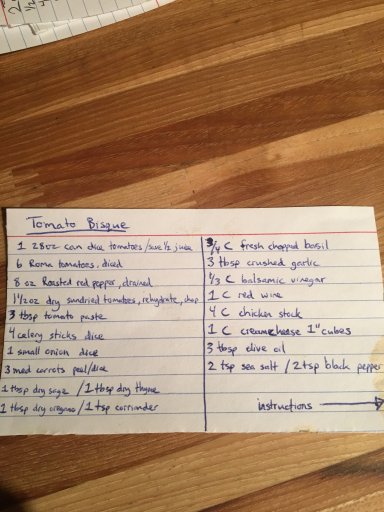 Tomato Bisque
1 28oz can dice tomatoes/save 1/2 juice
6 Roma tomatoes, diced
8 oz Roasted red pepper, drained
1 1/2 oz dry sundried tomatoes, rehydrate, chop
3 tbsp tomato paste
4 celery sticks dice
1 small onion dice
3 med carrots peel/dice
1 tbsp dry sage / 1 tbsp dry thyme
1 tbsp dry oregano / 1 tsp corriander
3/4 C fresh chopped basil
3 tbsp crushed garlic
1/3 C balsamic vinegar
1 C red wine
4 C chicken stock
1 C creamcheese 1" cubes
3 tbsp olive oil
2 tsp sea salt / 2 tsp black pepper
instructions →